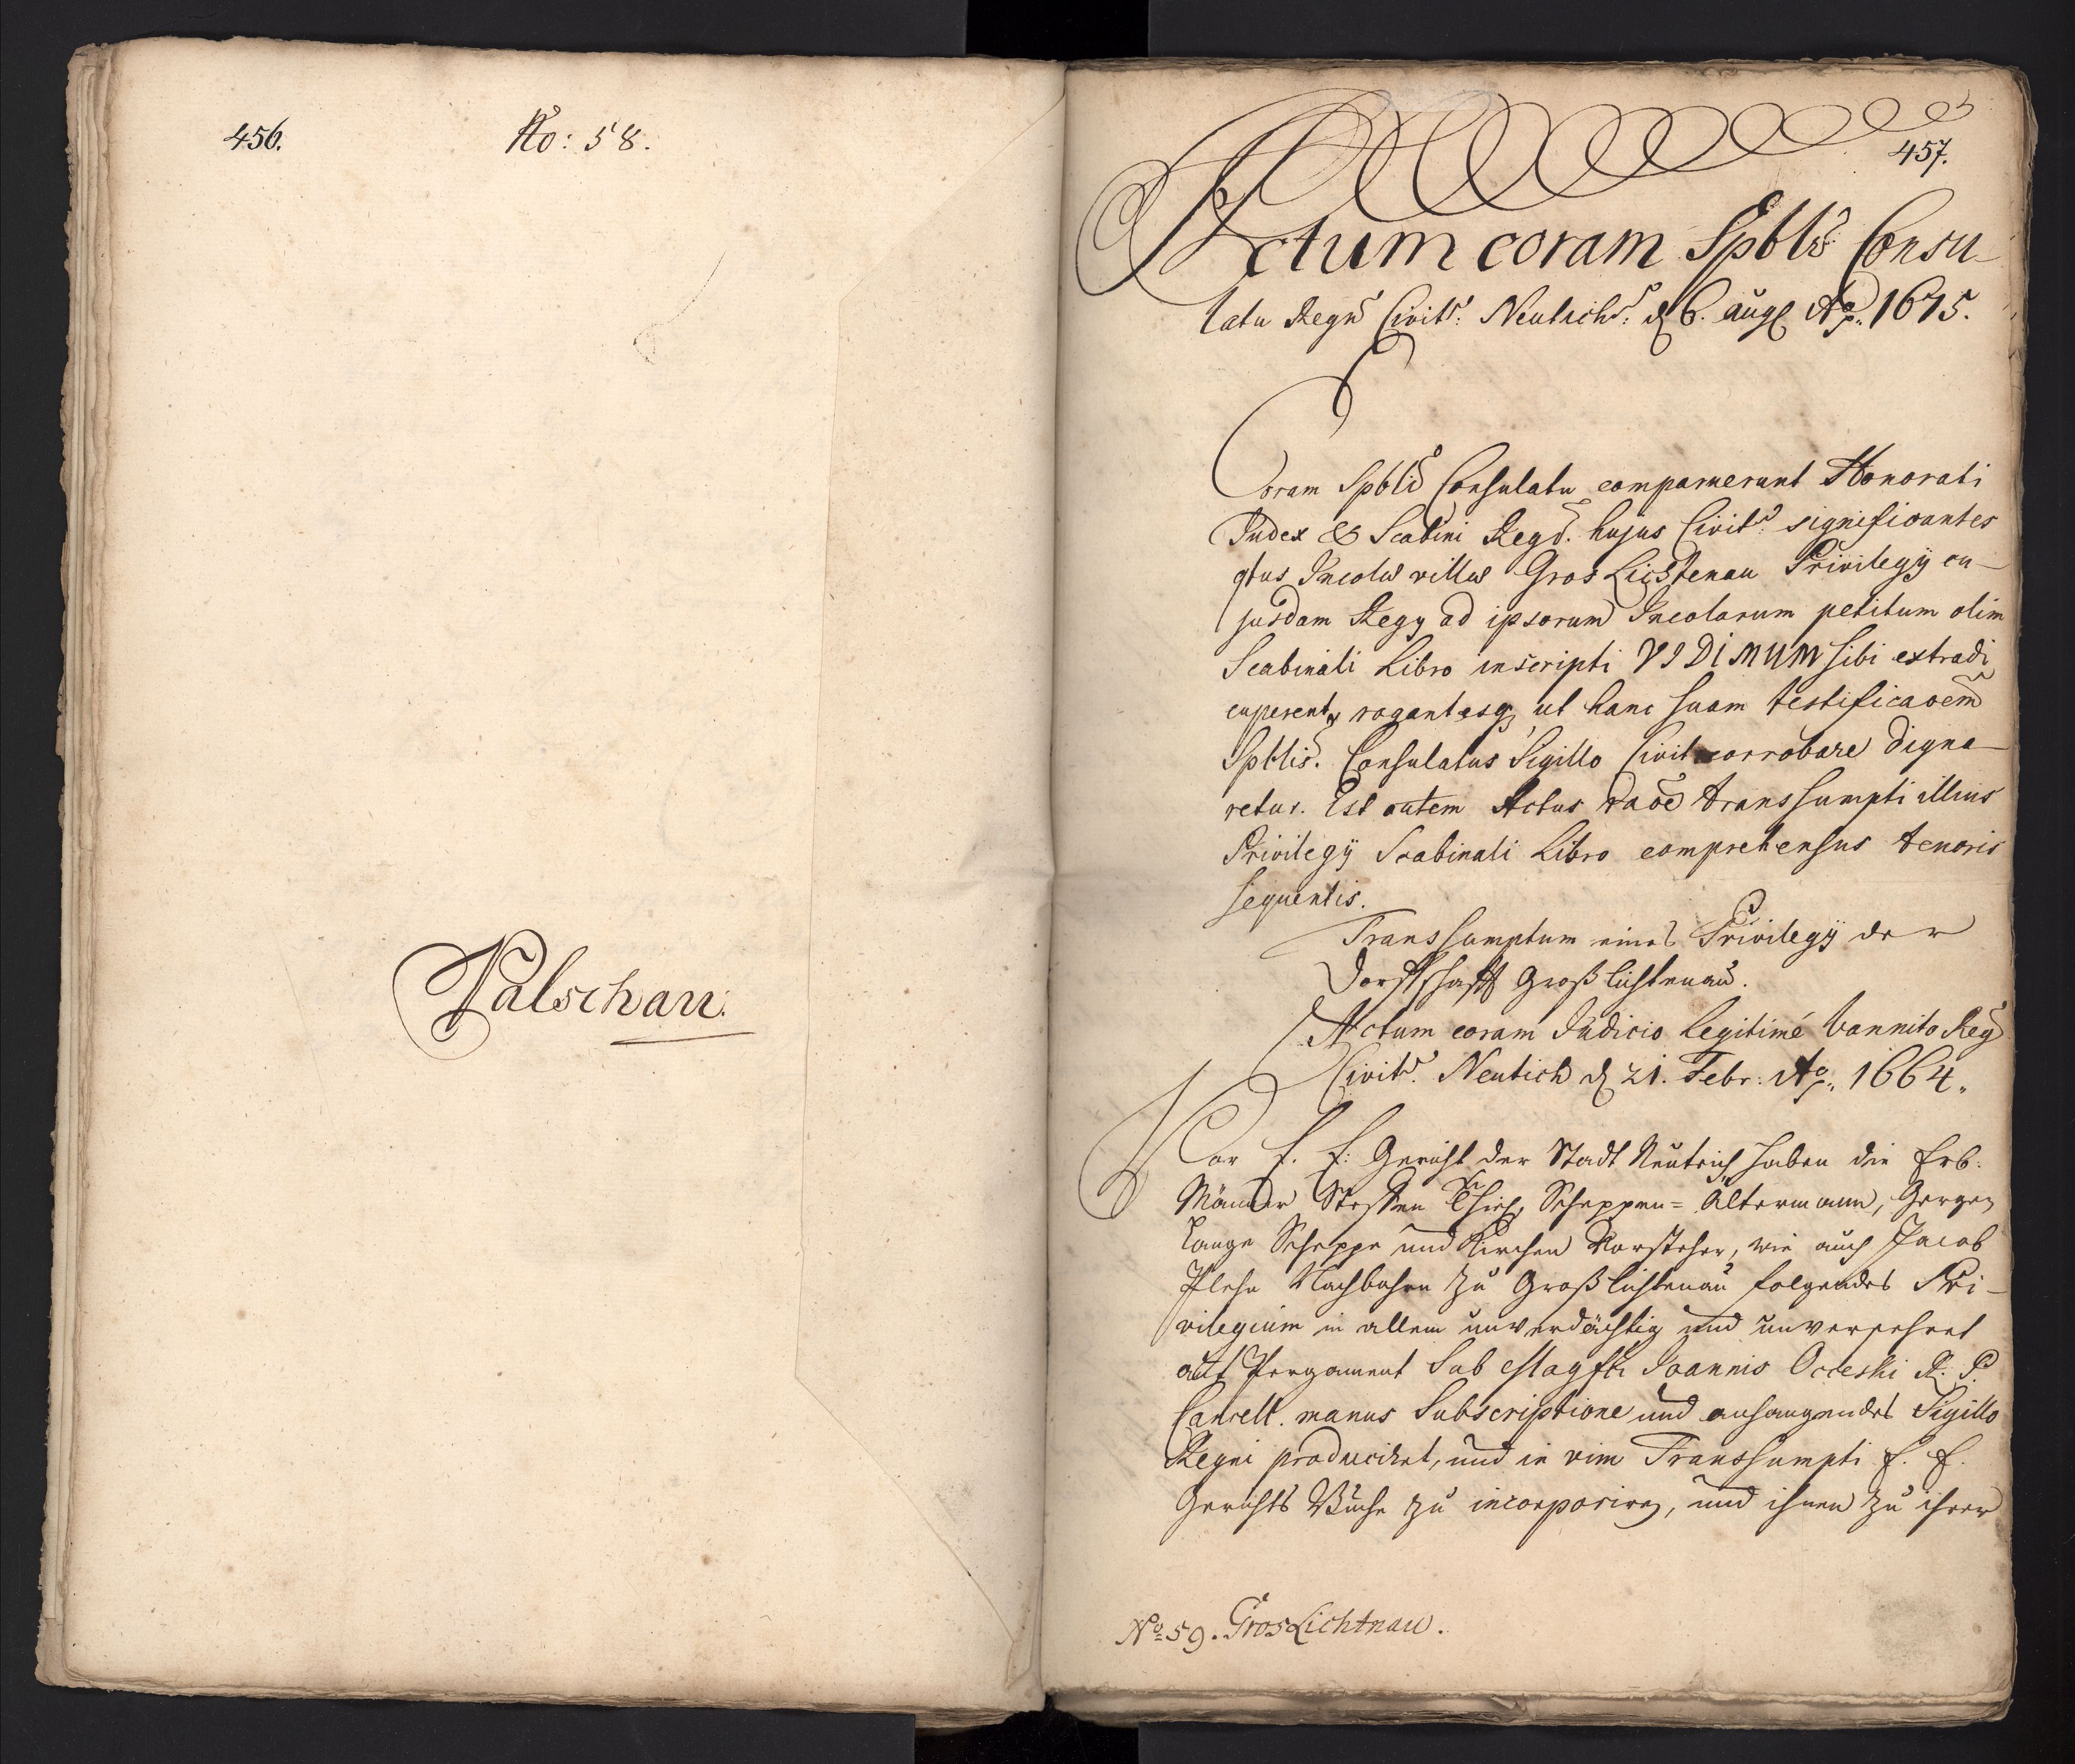 456.
No: 58.
Palschau.
457.
Actum coram Spbli Consu-
latu Regiæ Civit: Neutich: d 6. aug Ao. 1675.
Coram Spbli Consulatu comparuerunt Honorati
Judex & Scabini Reg. hujus Civit: significantes
qtus Incolæ villæ Gros Lichtenau Privilegÿ cu-
jusdam Regÿ ad ipsorum Incolarum petitum olim
Scabinali Libro inscripti VIDIMUM sibi extradi
cuperent, rogantesq ut hanc suam testificaoem
Spblis. Consulatus Sigillo Civit corrobare digna-
retur. Est autem Actus raoe transsumpti illius
Privilegÿ Scabinali Libro comprehensus tenoris
sequentis.
Transsumptum eines Privilegÿ der
Dorffschafft Groß lichtenau.
Actum coram Judicio Legitimé bannito Reg
Civit. Neutich d 21. Febr: Ao. 1664.
Vor E. E: Gericht der Stadt Neutich haben die Erb:
Männer Steffen Scheppen= Altermann, Gergen
Lange Scheppe und Kirchen Vorsteher, wie auch Jacob
Plehn Nachbahrn zu Groß lichtenau folgendes Pri-
vilegium in allem unverdächtig und unversehret
auf Pergament Sub Magfci Joannis Ocieski R. P.
Cancell. manus Subscriptione und anhangendes Sigillo
Regni produciret, und in vim Transsumpti E. E.
Gerichts Buche zu incorporiren, und ihnen zu ihrer
No 59. Gros Lichtnau.